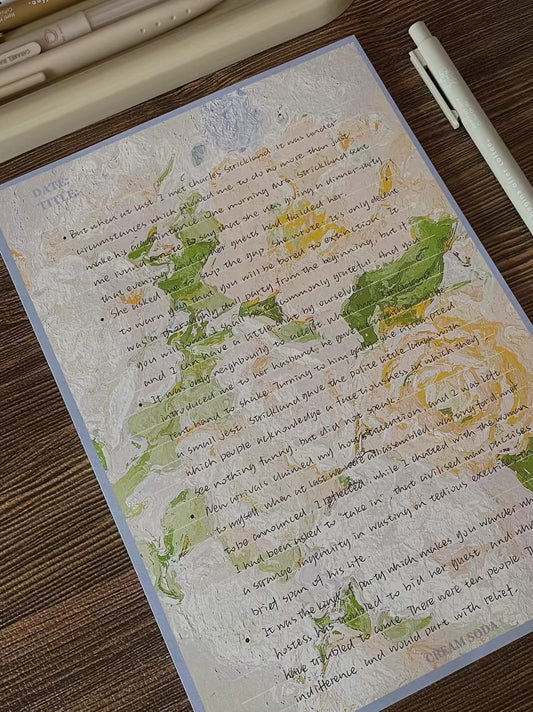 DATE:
TITLE:
But when at last I met Charles Strickland, it was under
circumstances which allowed me to do no more than just
make his acquaintance. One morning Mrs Strickland sent
me round a note to say that she was giving a dinner-party
that evening, and one of her guests had failed her.
She asked me to stop the gap. She wrote: "It's only decent
to warn you that you will be bored to extinction. It
was a thoroughly dull party from the beginning, but if
you will come I shall be uncommonly grateful. And you
and I can have a little chat by ourselves."
It was only neighbourly to accept. When Mrs Strickland
introduced me to her husband, he gave me a rather indifferent
hand to shake. Turning to him gaily, she attempted
a small jest. Strickland gave the polite little laugh with
which people acknowledge a facetiousness in which they
see nothing funny, but did not speak.
New arrivals claimed my host's attention, and I was left
to myself. When at last we were all assembled, waiting for dinner
to be announced, I reflected, while I chatted with the woman
I had been asked to "take in", that civilised man practises
a strange ingenuity in wasting on tedious
brief span of his life.
It was the kind of party which makes you wonder
hostess has troubled to bid her guess, and
have troubled to come. There were ten people.
indifference, and would part with relief.
CREAM SODA